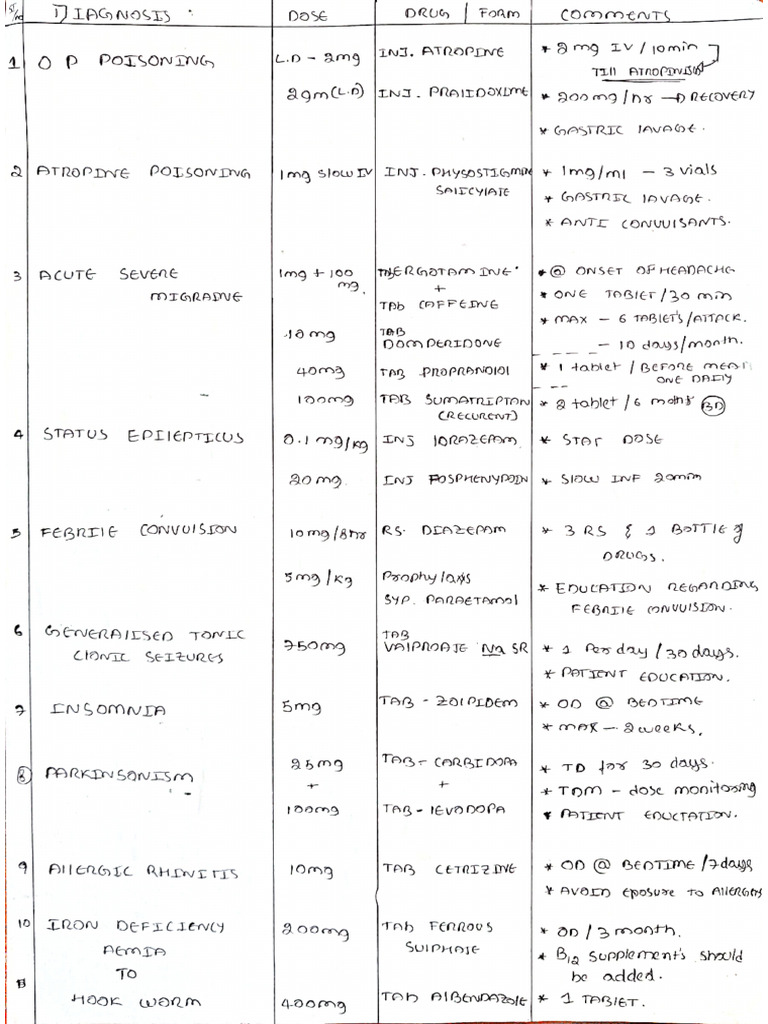 Sr/no DIAGNOSIS : DOSE DRUG / FORM COMMENTS
1 O P POISONING L.D - 2mg INJ. ATROPINE * 2mg IV / 10min
Till ATROPINISN
2gm (L.D) INJ. PRAlIDOXIME * 200mg/hr → RECOVERY
* GASTRIC lAVAGE.
2 ATROPINE POISONING 1mg slow IV INJ. PHYSOSTIGMINE * 1mg/ml - 3 vials
SAlICYlATE * GASTRIC lAVAGE.
* ANTI CONVUlSANTS.
3 ACUTE SEVERE 1mg + 100 ERGOTAMINE * @ ONSET OF HEADACHE
MIGRAINE mg. + * ONE TABlET / 30 min
TAb CAFFEINE * MAX - 6 TABlET'S/ATTACK.
10mg TAB - 10 days/month.
DOMPERIDONE
40mg TAB PROPRANOlOl * 1 tablet / BEFORE MEAl
ONE DAIlY
100mg TAB SUMATRIPTAN * 2 tablet / 6 BD
(RECURENT)
4 STATUS EPIlEPTICUS 0.1mg/kg INJ lORAZEPAM * STAT DOSE
20mg. INJ FOSPHENYTOIN * SlOW INF 20min
5 FEBRIlE CONVUlSION 10mg/8hr RS. DIAZEPAM * 3 RS & 1 BOTTlE of
DRUGS.
5mg/kg Prophylaxis * EDUCATION REGARDING
SYP. PARAETAMOl FEBRIlE CONVUlSION.
6 GENERAlISED TONIC TAB
ClONIC SEIZURES 750mg VAlPROATE Na SR * 1 Per day / 30 days.
* PATIENT EDUCATION.
7 INSOMNIA 5mg TAB - ZOlPIDEM * OD @ BEDTIME
* MAX - 2 weeks.
8 PARKINSONISM 25mg TAB - CARBIDOPA * TD for 30 days.
+ + * TDM - dose monitoring
100mg TAB - lEVODOPA * PATIENT EDUCTATION.
9 AllERGIC RHINITIS 10mg TAB CETRIZINE * OD @ BEDTIME / 7 days
* AVOID EPOSURE TO AllERGENS
10 IRON DEFICIENCY 200mg TAb FERROUS * OD / 3 month.
AEMIA SUlPHATE * B12 supplement's should
TO be added.
HOOK WORM 400mg TAb AlBENDAZOlE * 1 TABlET.